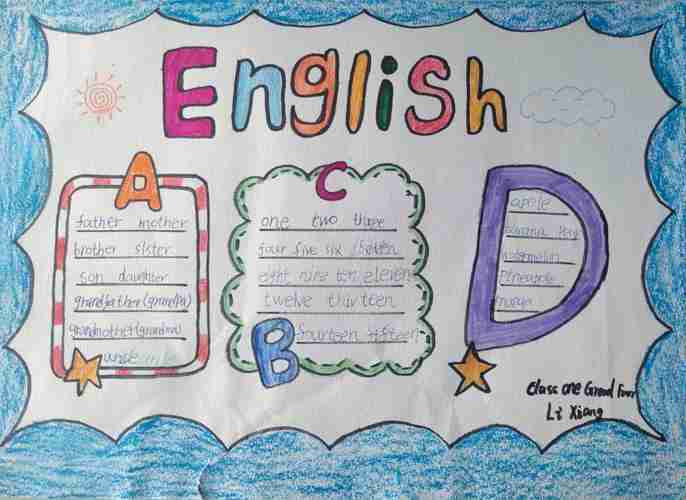 English
A
father mother
brother sister
son daughter
grandfather (grandpa)
grandmother (grandma)
uncle
C
one two three
four five six seven
eight nine ten eleven
twelve thirteen
B
fourteen fifteen
D
apple
banana
watermelon
Pineapple
Class one
Li Xiang